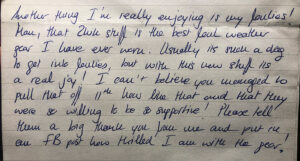 Another thing I'm really enjoying is my foulies!
Man, that Zhik stuff is the best foul weather
gear I have ever worn. Usually its such a drag
to get into foulies, but with this new stuff its
a real joy! I can't believe you managed to
pull that off 11th hour like that and that they
were so willing to be so supportive! Please tell
them a big thank you from me and put in
an FB post how thrilled I am with the gear!